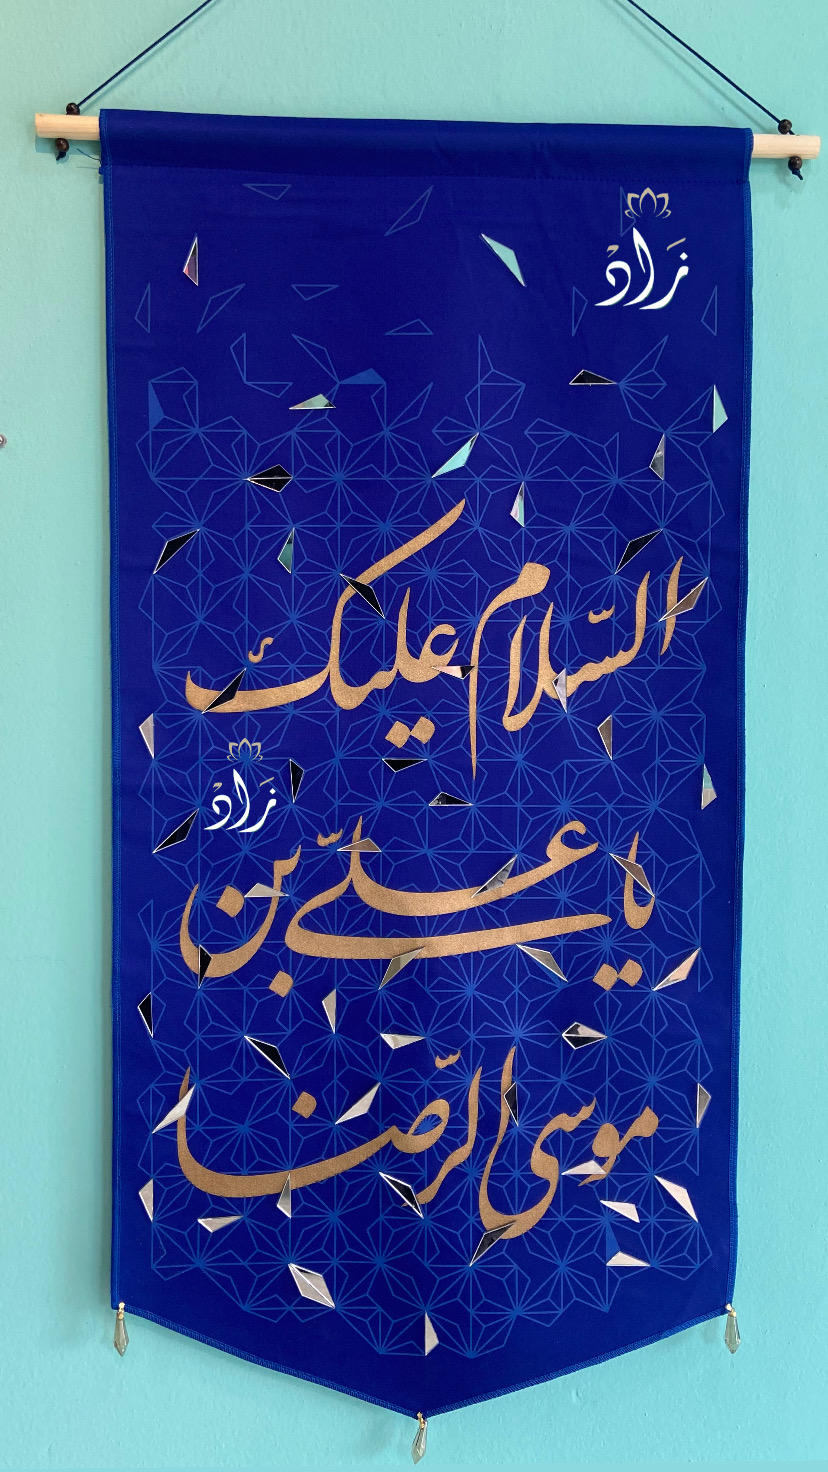 زاد
السّلام علیکَ
زاد
یا علیّ بن
موسی الرّضا